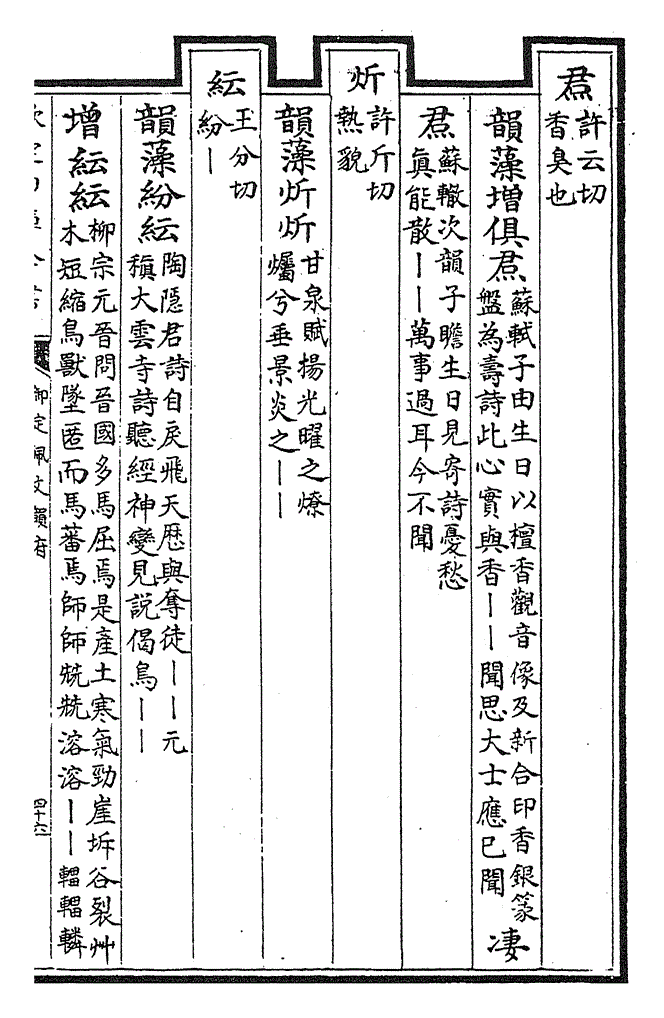 焄許云切
香臭也
韻藻增俱焄蘇軾子由生日以檀香觀音像及新合印香銀篆
盤為壽詩此心實與香丨丨聞思大士應已聞
凄
焄蘇轍次韻子瞻生日見寄詩憂愁
真能散丨丨萬事過耳今不聞
炘許斤切
熱貌
韻藻炘炘甘泉賦揚光曜之燎
爥兮垂景炎之丨丨
紜王分切
紛丨
韻藻紛紜陶隱君詩自戾飛天歴與奪徒丨丨元
稹大雲寺詩聽經神變見説偈鳥丨丨
增紜紜柳宗元晉問晉國多馬屈焉是產土寒氣勁崖坼谷裂艸
木短縮鳥獸墜匿而馬蕃焉師師兟兟溶溶丨丨轀轀轔
御定佩文韻府
四十六